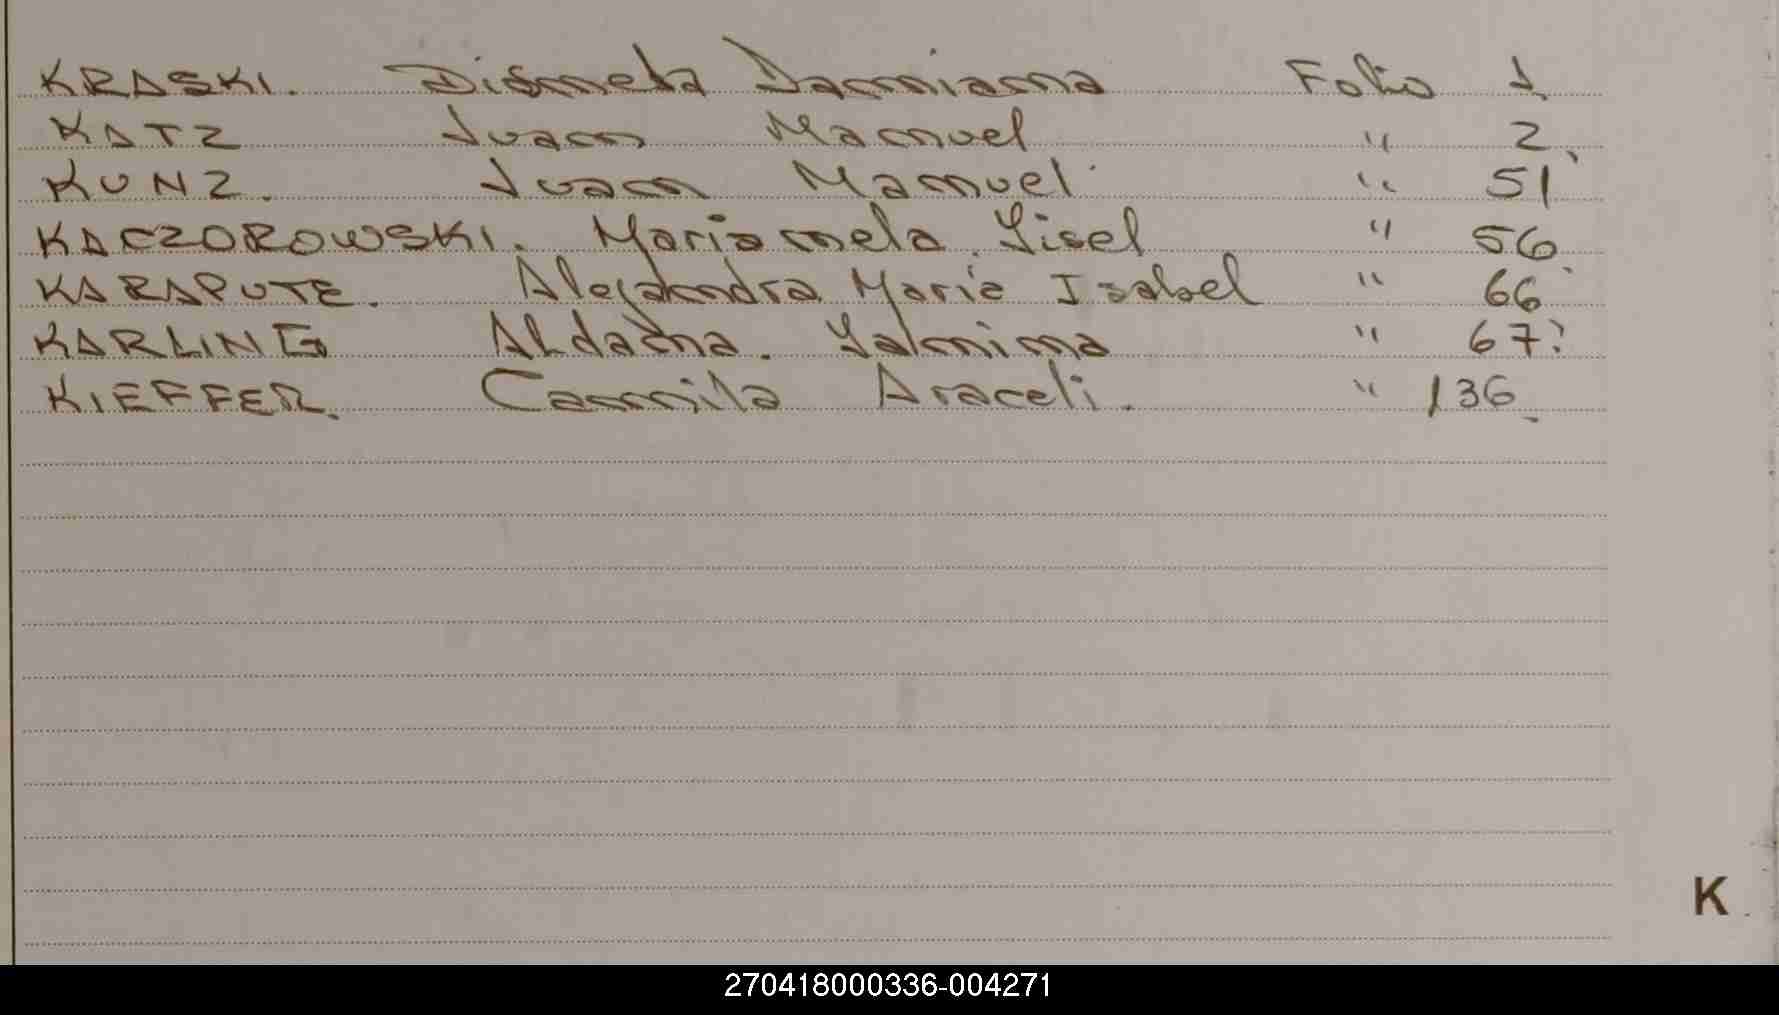 KRASKI. Dismela Damiana Folio 1.
KATZ Juan Manuel " 2.
KUNZ. Juan Manuel " 51
KACZOROWSKI. Marianela Gisel " 56
KARAPUTE. Alejandra Maria Isabel " 66
KARLING Aldana. Yalmina " 67
KIEFFER. Camila Araceli. " 136.
K
270418000336-004271